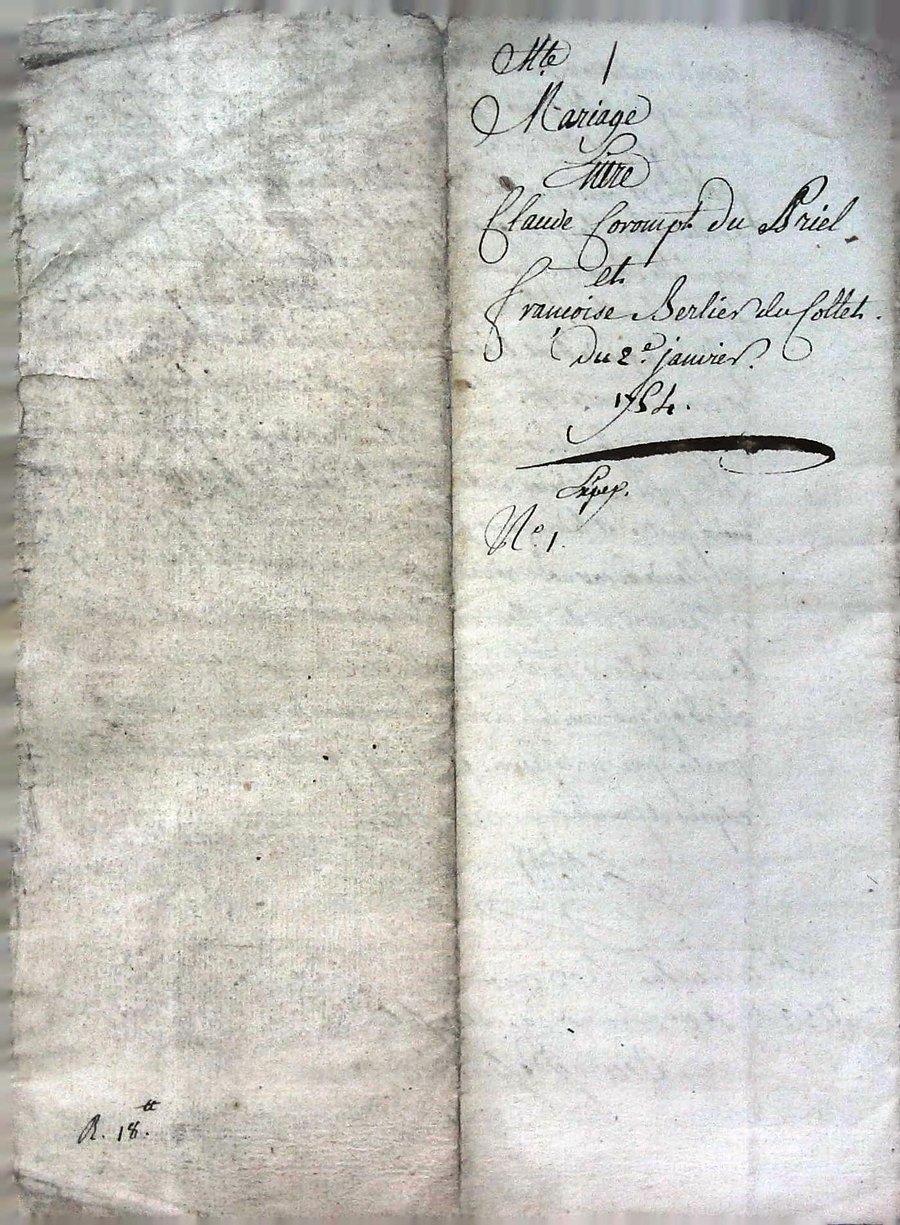 Mte 1
Mariage
Entre
Claude Corompt du Priel
et
Françoise Berlier du Collet.
du 2e. janvier.
1754.
Expep.
No. 1.
R. 18.tt